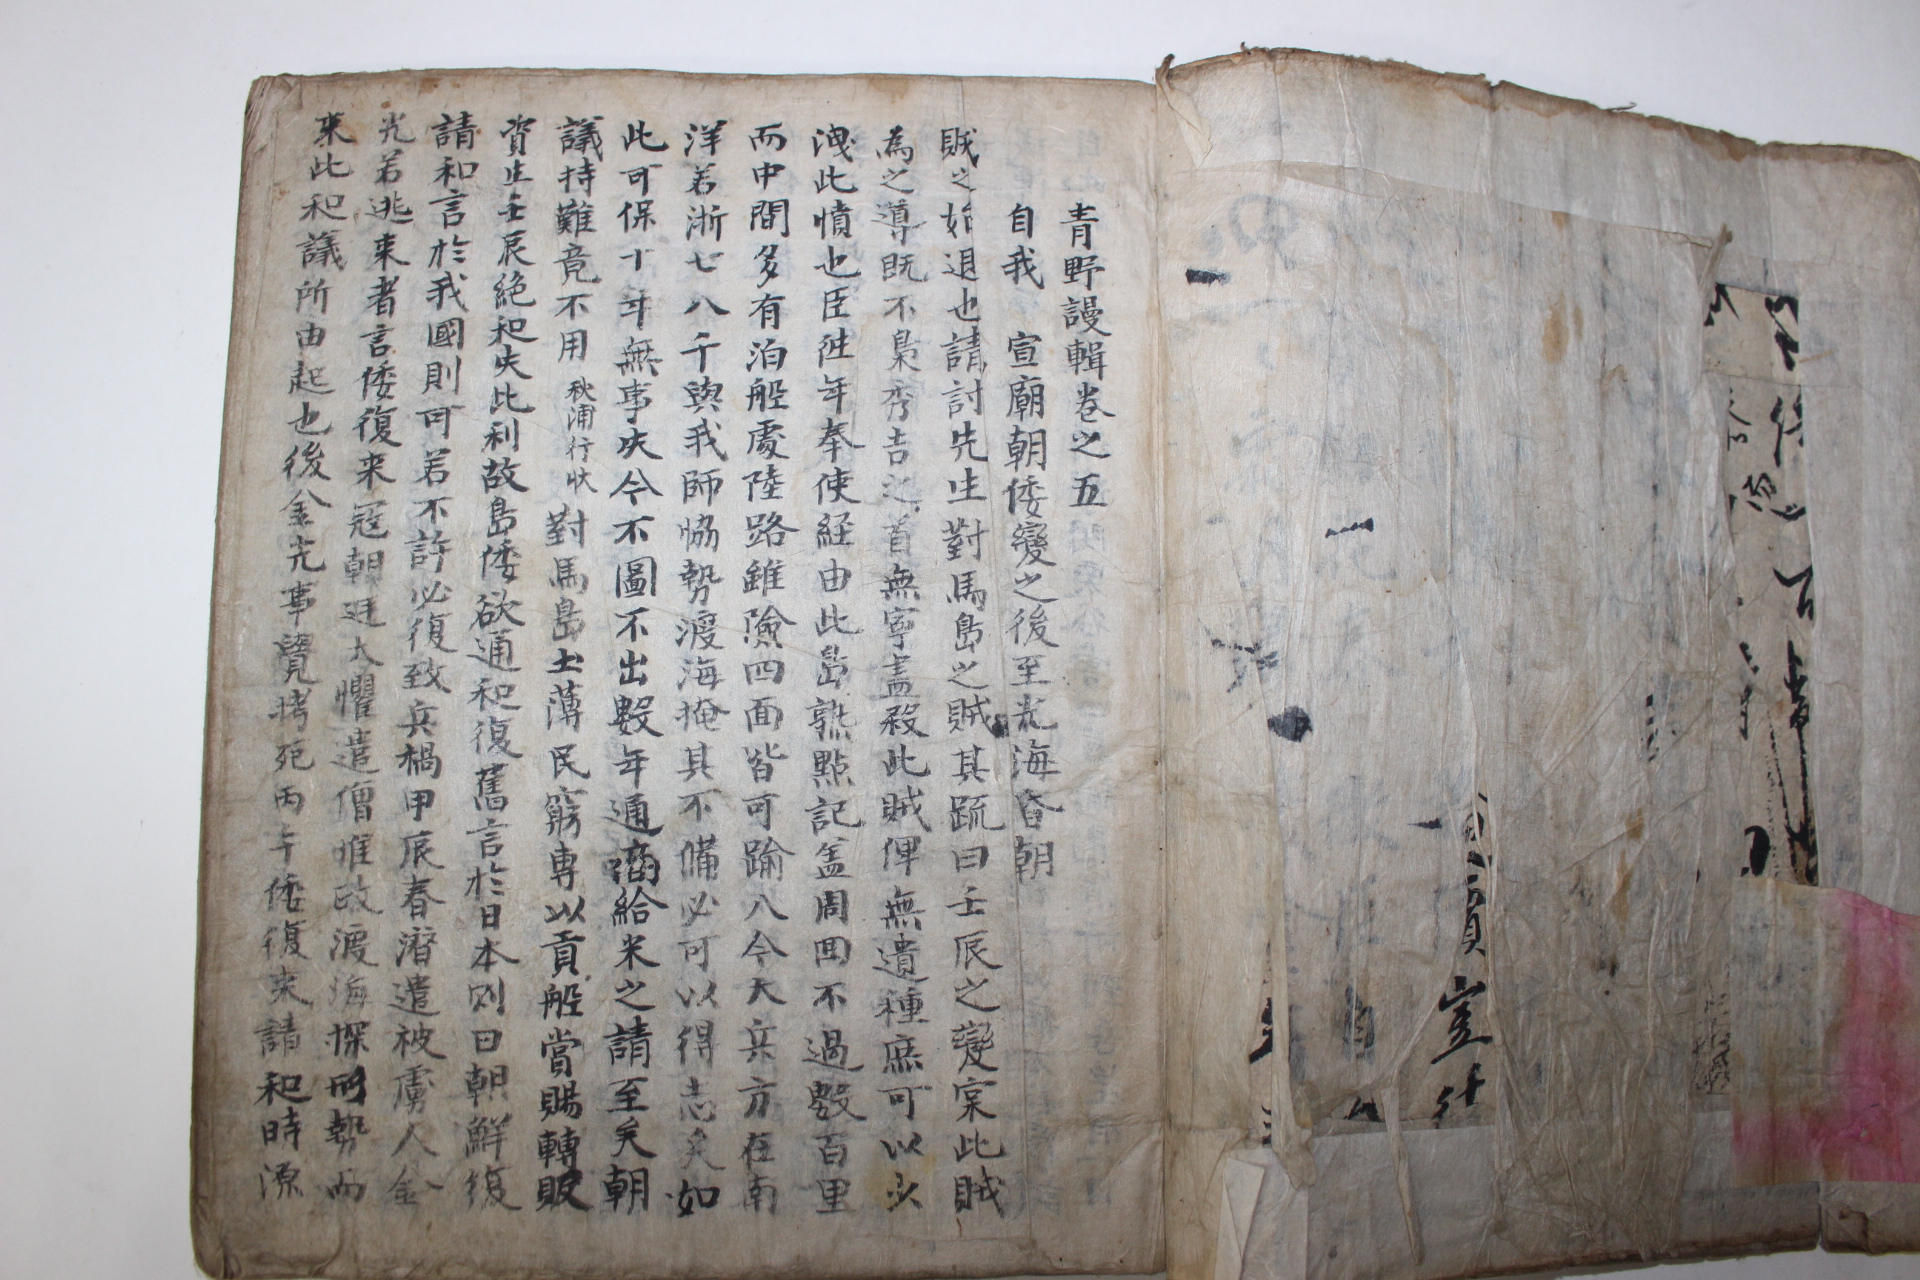 青野謾輯卷之五
自我 宣廟朝倭變之後至光海昏朝
賊之始退也請討先生對馬島之賊其疏曰壬辰之變寔此賊
為之導旣不梟秀吉之首無寧盡殺此賊俾無遺種庶可以少
洩此憤也臣往年奉使経由此島熟點記盖周回不過數百里
而中間多有泊船處陸路雖險四面皆可踰入今天兵方在南
洋若浙七八千與我師恊勢渡海掩其不備必可以得志矣如
此可保十年無事矣今不圖不出數年通衢給米之請至矣朝
議持難竟不用 秋浦行狀 對馬島土薄民窮專以貢船賞賜轉販
資止壬辰絕和失此利故島倭欲通和復舊言於日本則曰朝鮮復
請和言於我國則可若不許必復致兵禍甲辰春潛遣被虜人金
光若逃來者言倭復来冦朝廷大懼遣僧惟政渡海探形勢而
來此和議所由起也後金光事覺拷死丙午倭復來請和時源